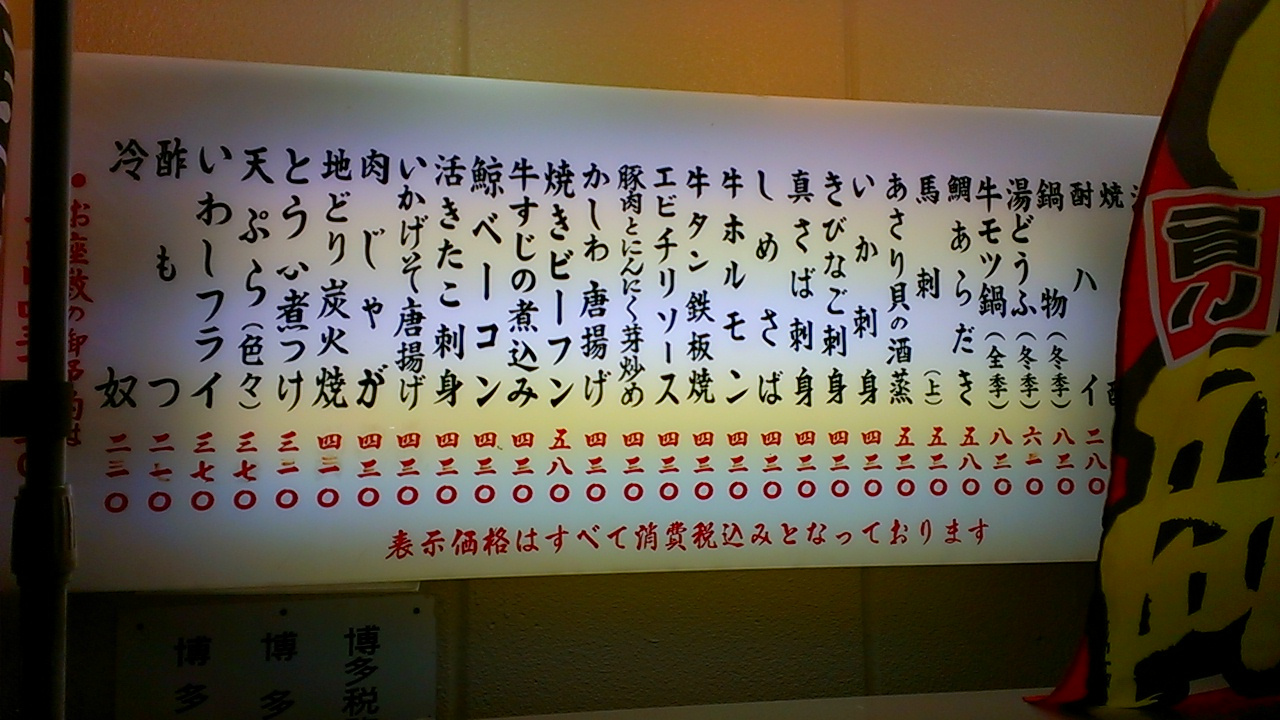 酎ハイ 二八〇
鍋物(冬季) 八三〇
湯どうふ(冬季) 六一〇
牛モツ鍋(全季) 八三〇
鯛あらだき 五八〇
馬刺(上) 五三〇
あさり貝の酒蒸 五三〇
いか刺身 四三〇
きびなご刺身 四三〇
真さば刺身 四三〇
しめさば 四三〇
牛ホルモン 四三〇
牛タン鉄板焼 四三〇
エビチリソース 四三〇
豚肉とにんにく芽炒め 四三〇
かしわ唐揚げ 四三〇
焼きビーフン 五八〇
牛すじの煮込み 四三〇
鯨ベーコン 四三〇
活きたこ刺身 四三〇
いかげそ唐揚げ 四三〇
肉じゃが 四三〇
地どり炭火焼
とうふ煮つけ
天ぷら(色々) 三七〇
いわしフライ 三七〇
酢もつ 二七〇
冷奴 二三〇
表示価格はすべて消費税込みとなっております
博多税
博多
博多